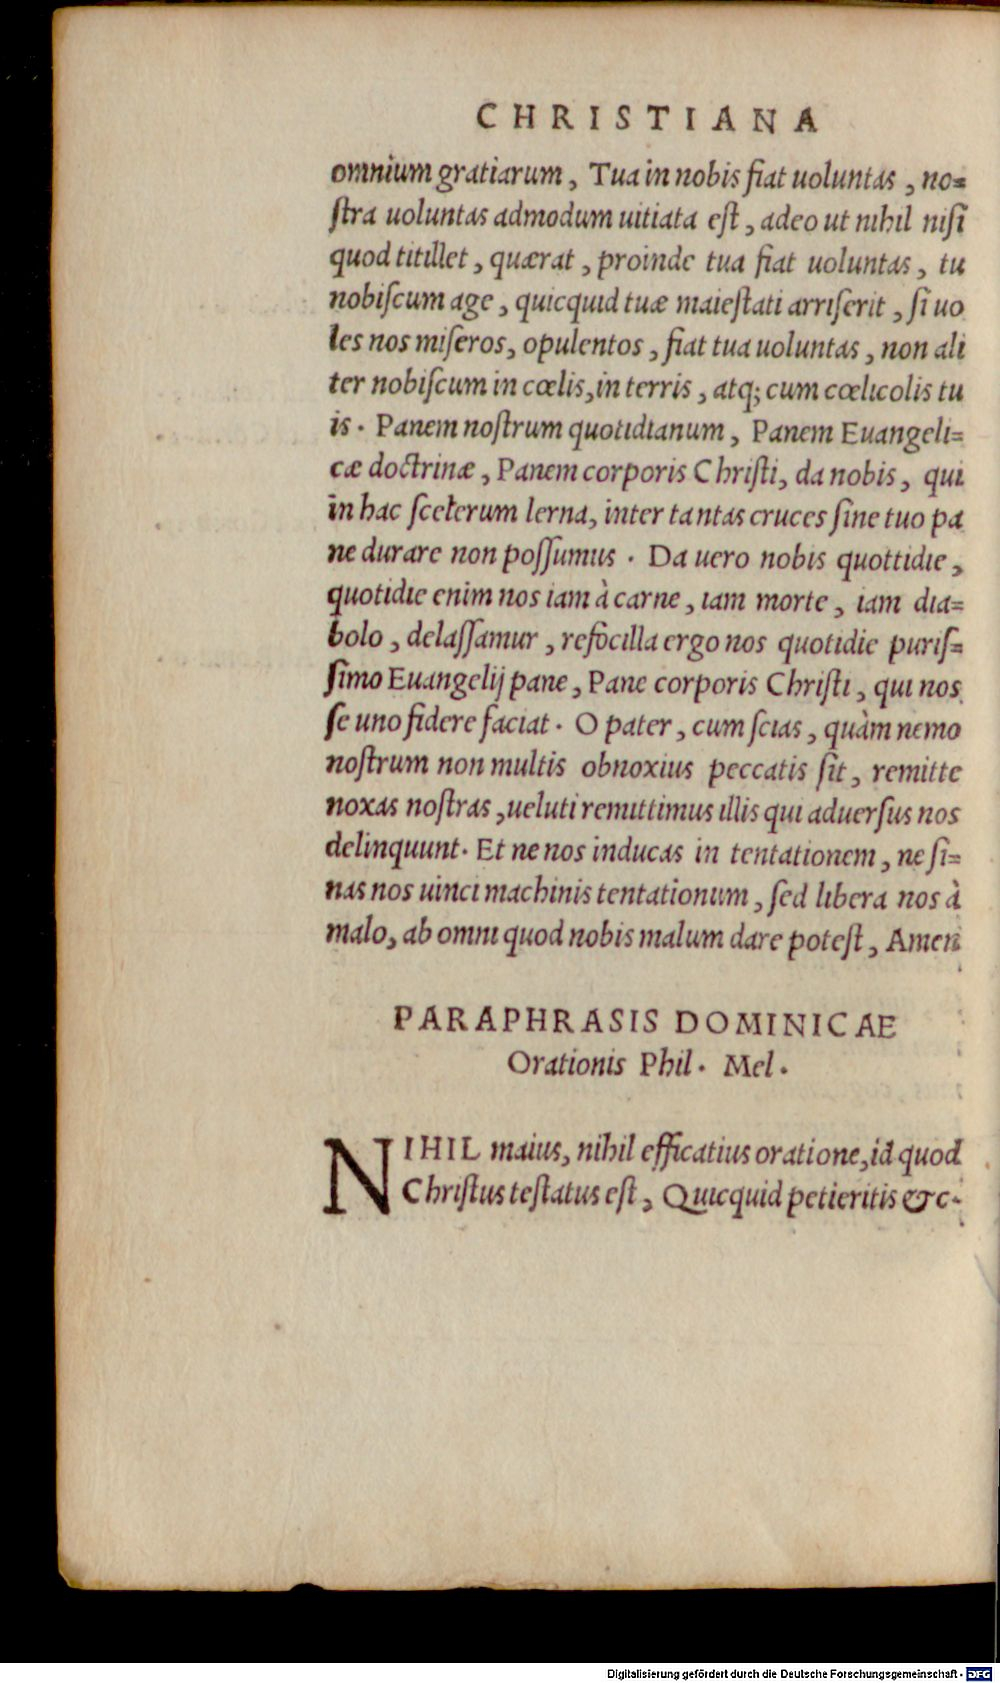 CHRISTIANA
omnium gratiarum, Tua in nobis fiat uoluntas, no=
ſtra uoluntas admodum uitiata eſt, adeo ut nihil niſi
quod titillet, quærat, proinde tua fiat uoluntas, tu
nobiſcum age, quicquid tuæ maieſtati arriſerit, ſi uo
les nos miſeros, opulentos, fiat tua uoluntas, non ali
ter nobiſcum in cœlis, in terris, atq; cum cœlicolis tu
is. Panem noſtrum quotidianum, Panem Euangeli=
cæ doctrinæ, Panem corporis Chriſti, da nobis, qui
in hac ſcelerum lerna, inter tantas cruces ſine tuo pa
ne durare non poſſumus. Da uero nobis quottidie,
quotidie enim nos iam à carne, iam morte, iam dia=
bolo, delaſſamur, refocilla ergo nos quotidie puriſ=
ſimo Euangelij pane, Pane corporis Chriſti, qui nos
ſe uno fidere faciat. O pater, cum ſcias, quàm nemo
noſtrum non multis obnoxius peccatis ſit, remitte
noxas noſtras, ueluti remittimus illis qui aduerſus nos
delinquunt. Et ne nos inducas in tentationem, ne ſi=
nas nos uinci machinis tentationum, ſed libera nos à
malo, ab omni quod nobis malum dare poteſt, Amen
PARAPHRASIS DOMINICAE
Orationis Phil. Mel.
NIHIL maius, nihil efficatius oratione, id quod
Chriſtus teſtatus eſt, Quicquid petieritis &c.
Digitalisierung gefördert durch die Deutsche Forschungsgemeinschaft - DFG